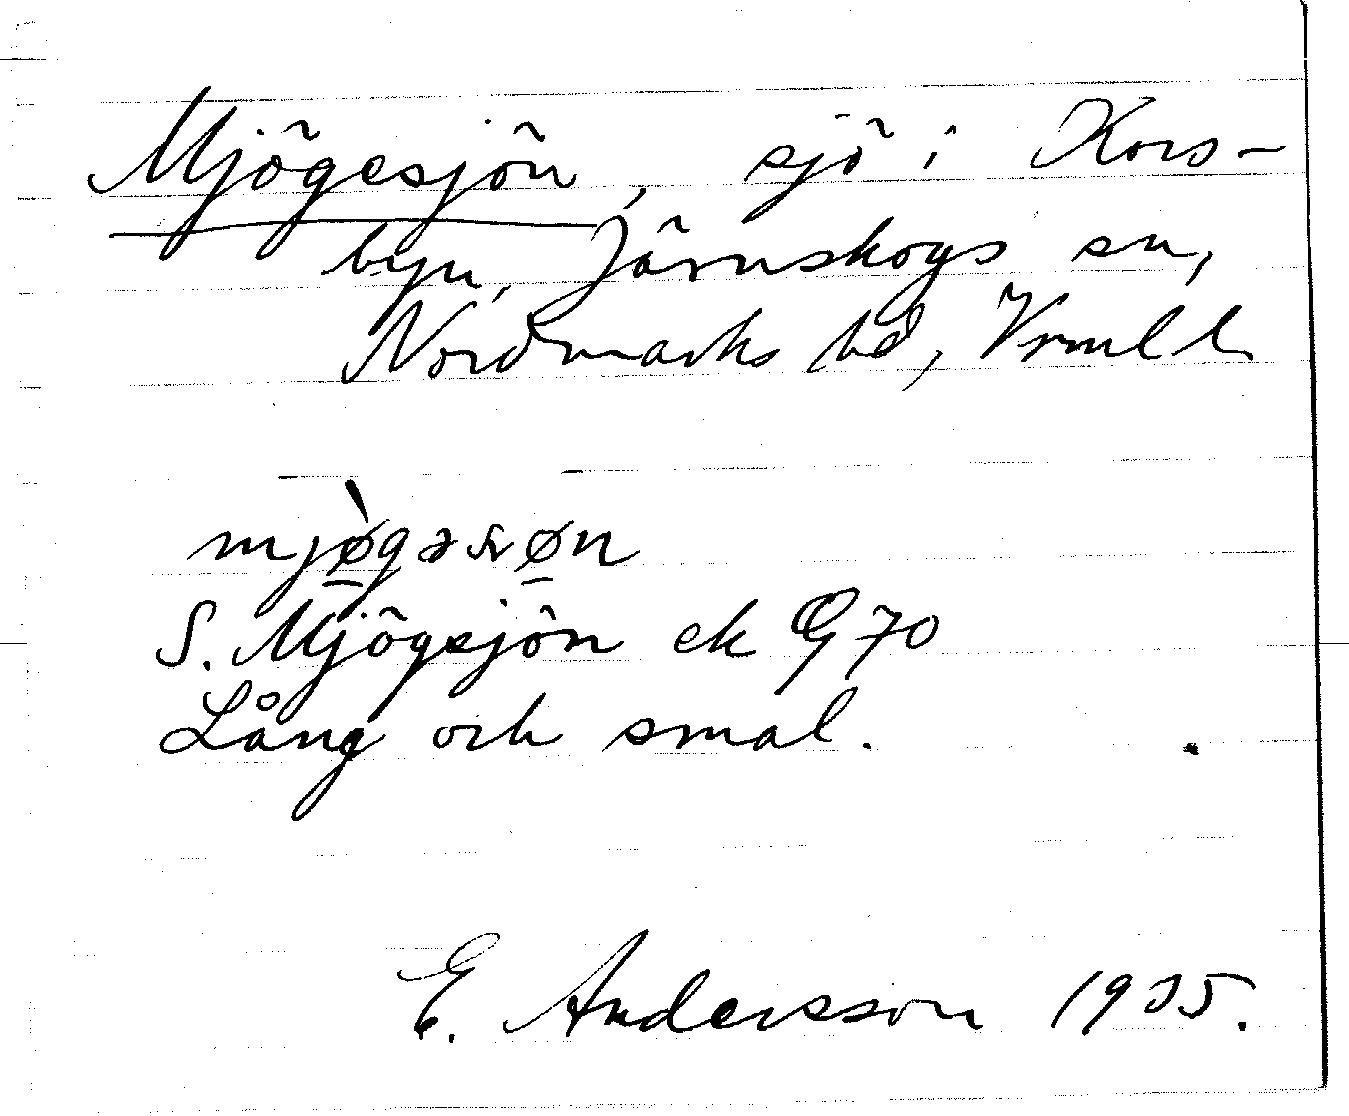 Mjögesjön, sjö i Kors-
byn, Järnskogs sn,
Nordmarks hd, Vrml l.
mjø̀gəsøn
S. Mjögsjön ek G 70
Lång och smal.
E. Andersson 1935.